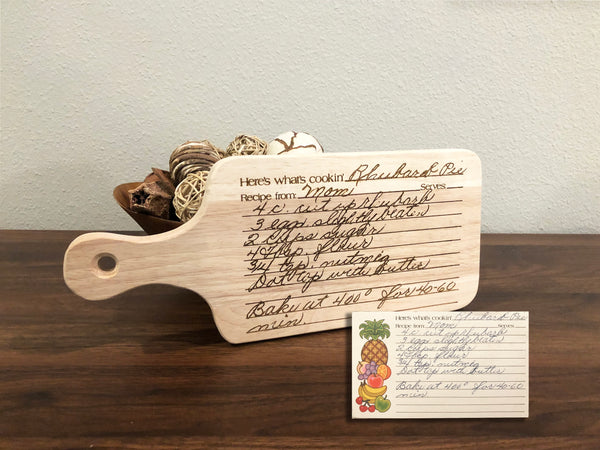 Here's what's cookin' Rhubarb Pie
Recipe from: Mom Serves
4 c. cut up rhubarb
3 eggs slightly beaten
2 cups sugar
4 tbsp. flour
3/4 tsp. nutmeg
Dot top with butter
Bake at 400° for 40-60
min.
Here's what's cookin' Rhubarb Pie
Recipe from: Mom Serves
4 c. cut up rhubarb
3 eggs slightly beaten
2 cups sugar
4 tbsp flour
3/4 tsp. nutmeg
Dot top with butter
Bake at 400° for 40-60
min.